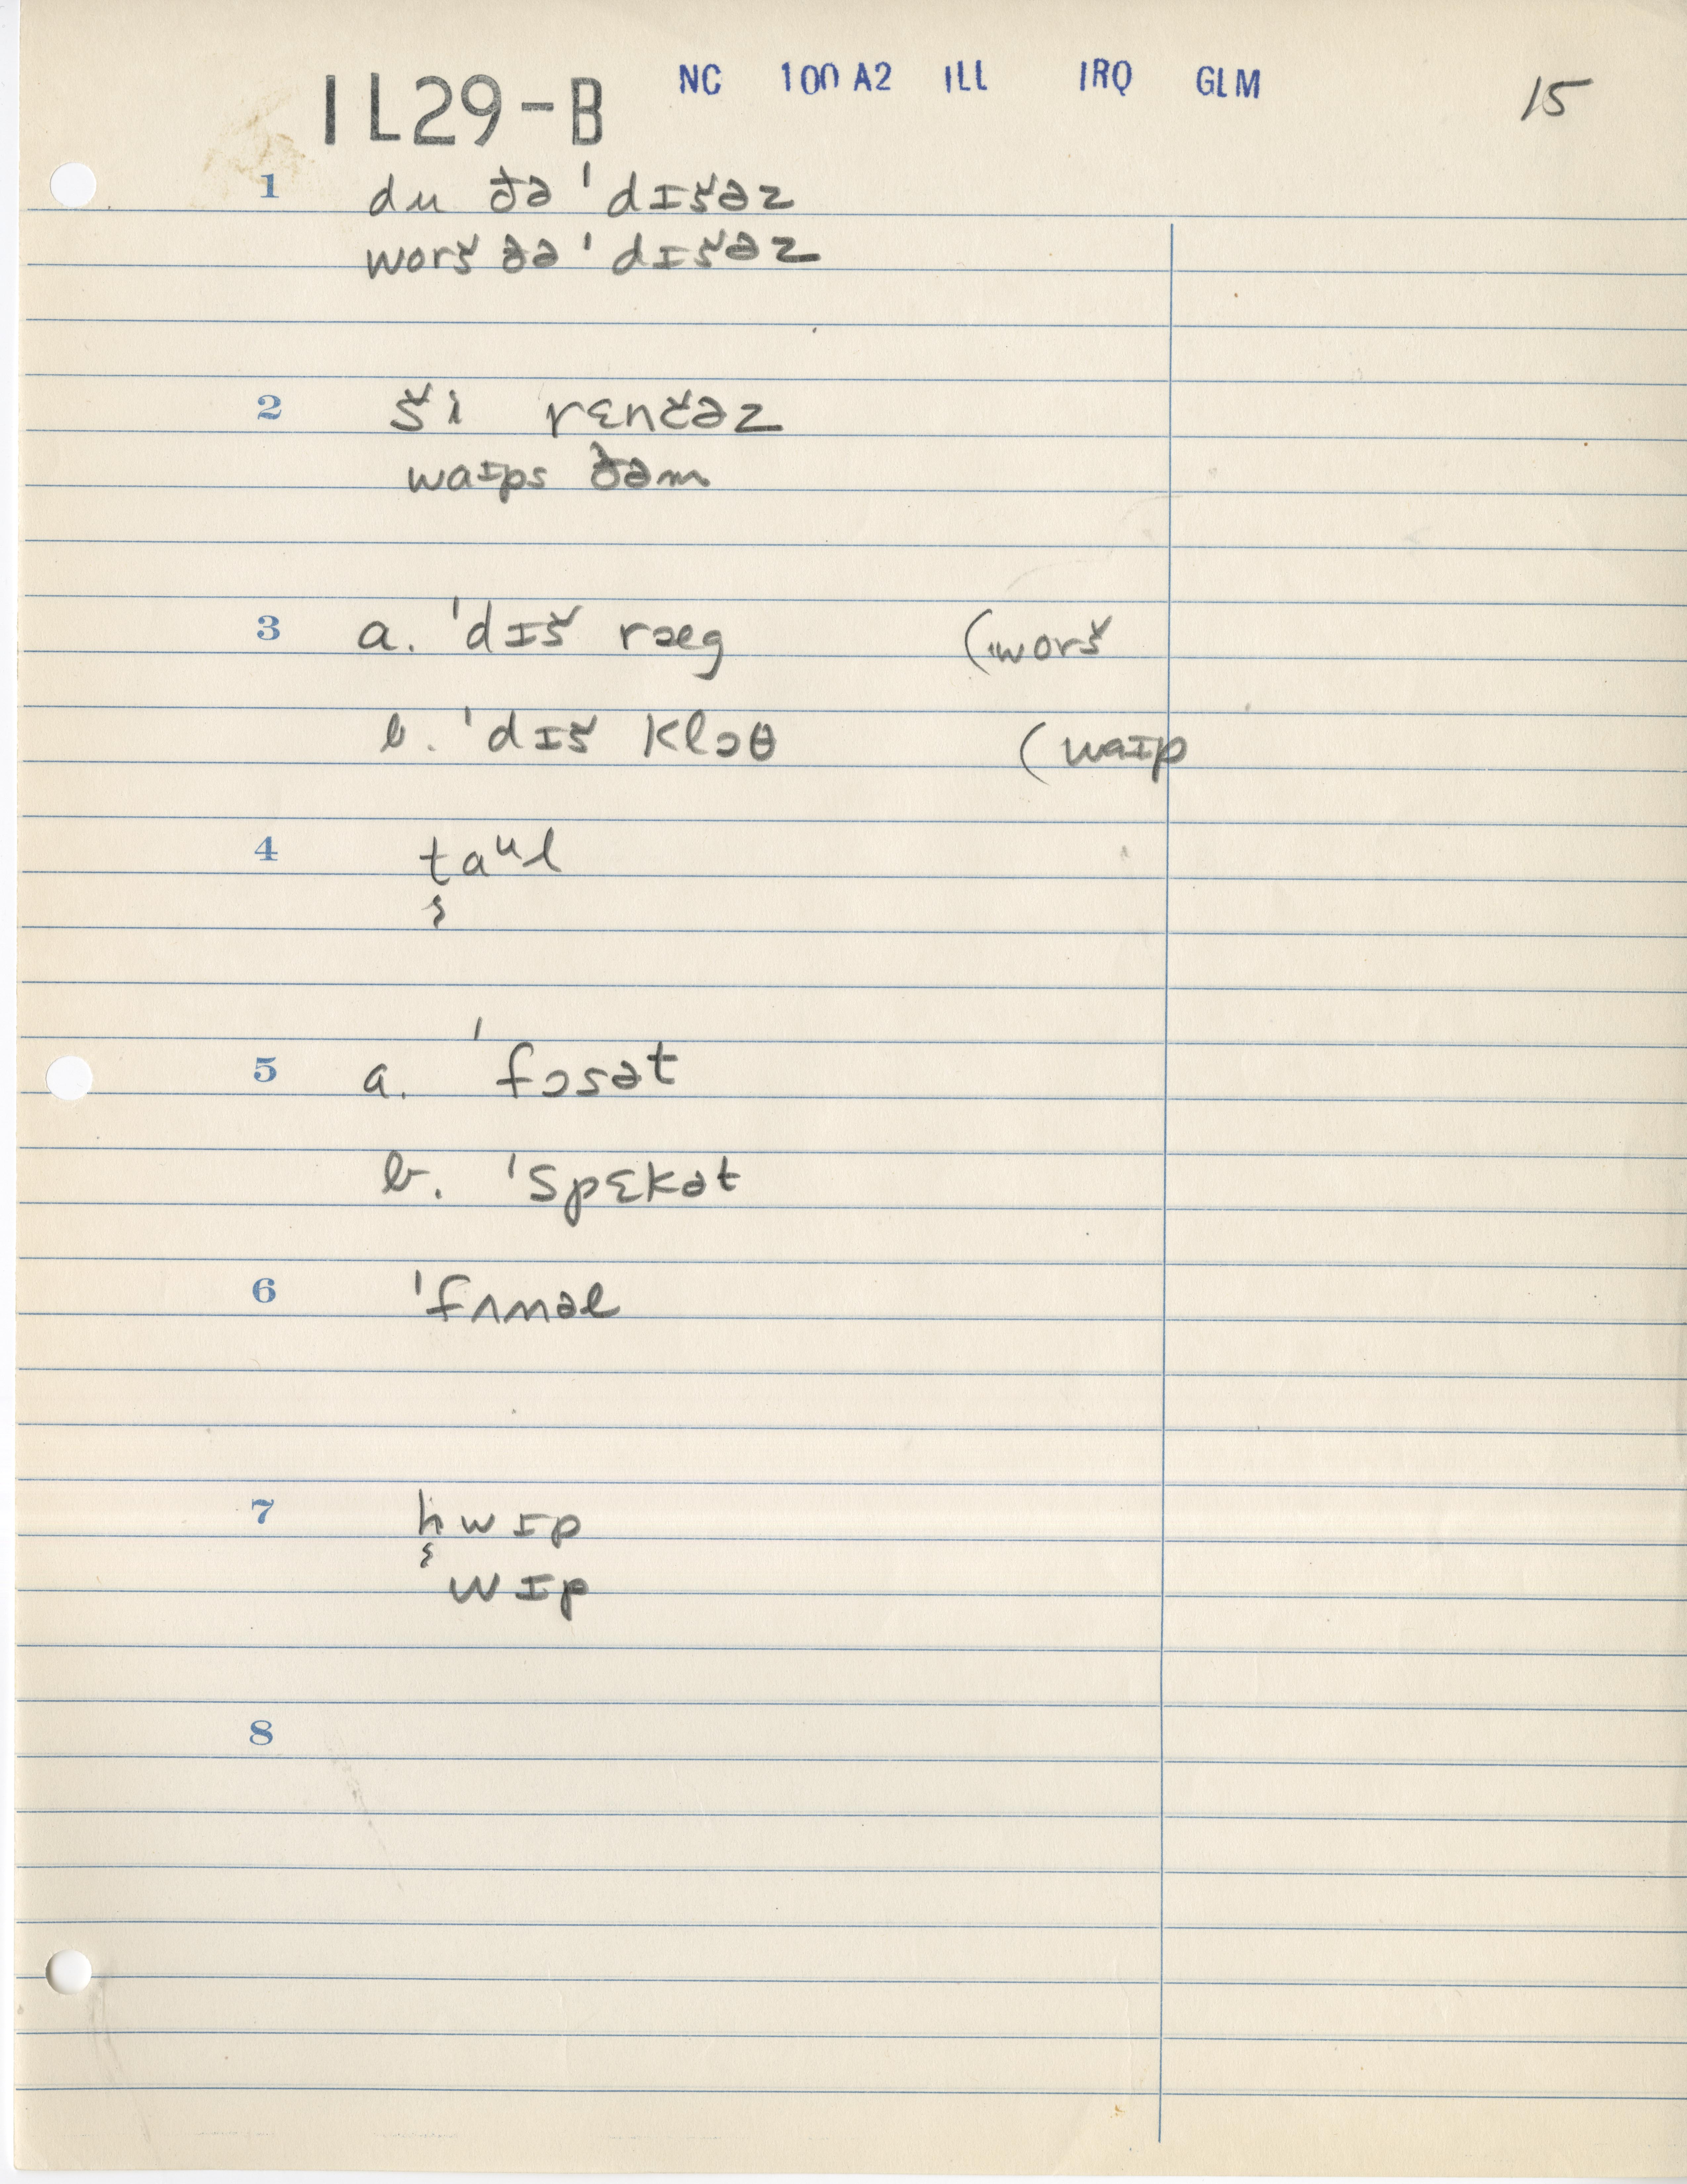 IL29-B NC 100 A2 ILL IRQ GLM 15
1 du ðə ˈdɪšəz
worš ðə ˈdɪšəz
2 ši rɛnčəz
waɪps ðəm
3 a. ˈdɪš ræg (worš
b. ˈdɪš klɔθ (waɪp
4 taᵘl
5 a. ˈfɔsət
b. ˈspɛkət
6 ˈfʌnəl
7 hwɪp
wɪp
8